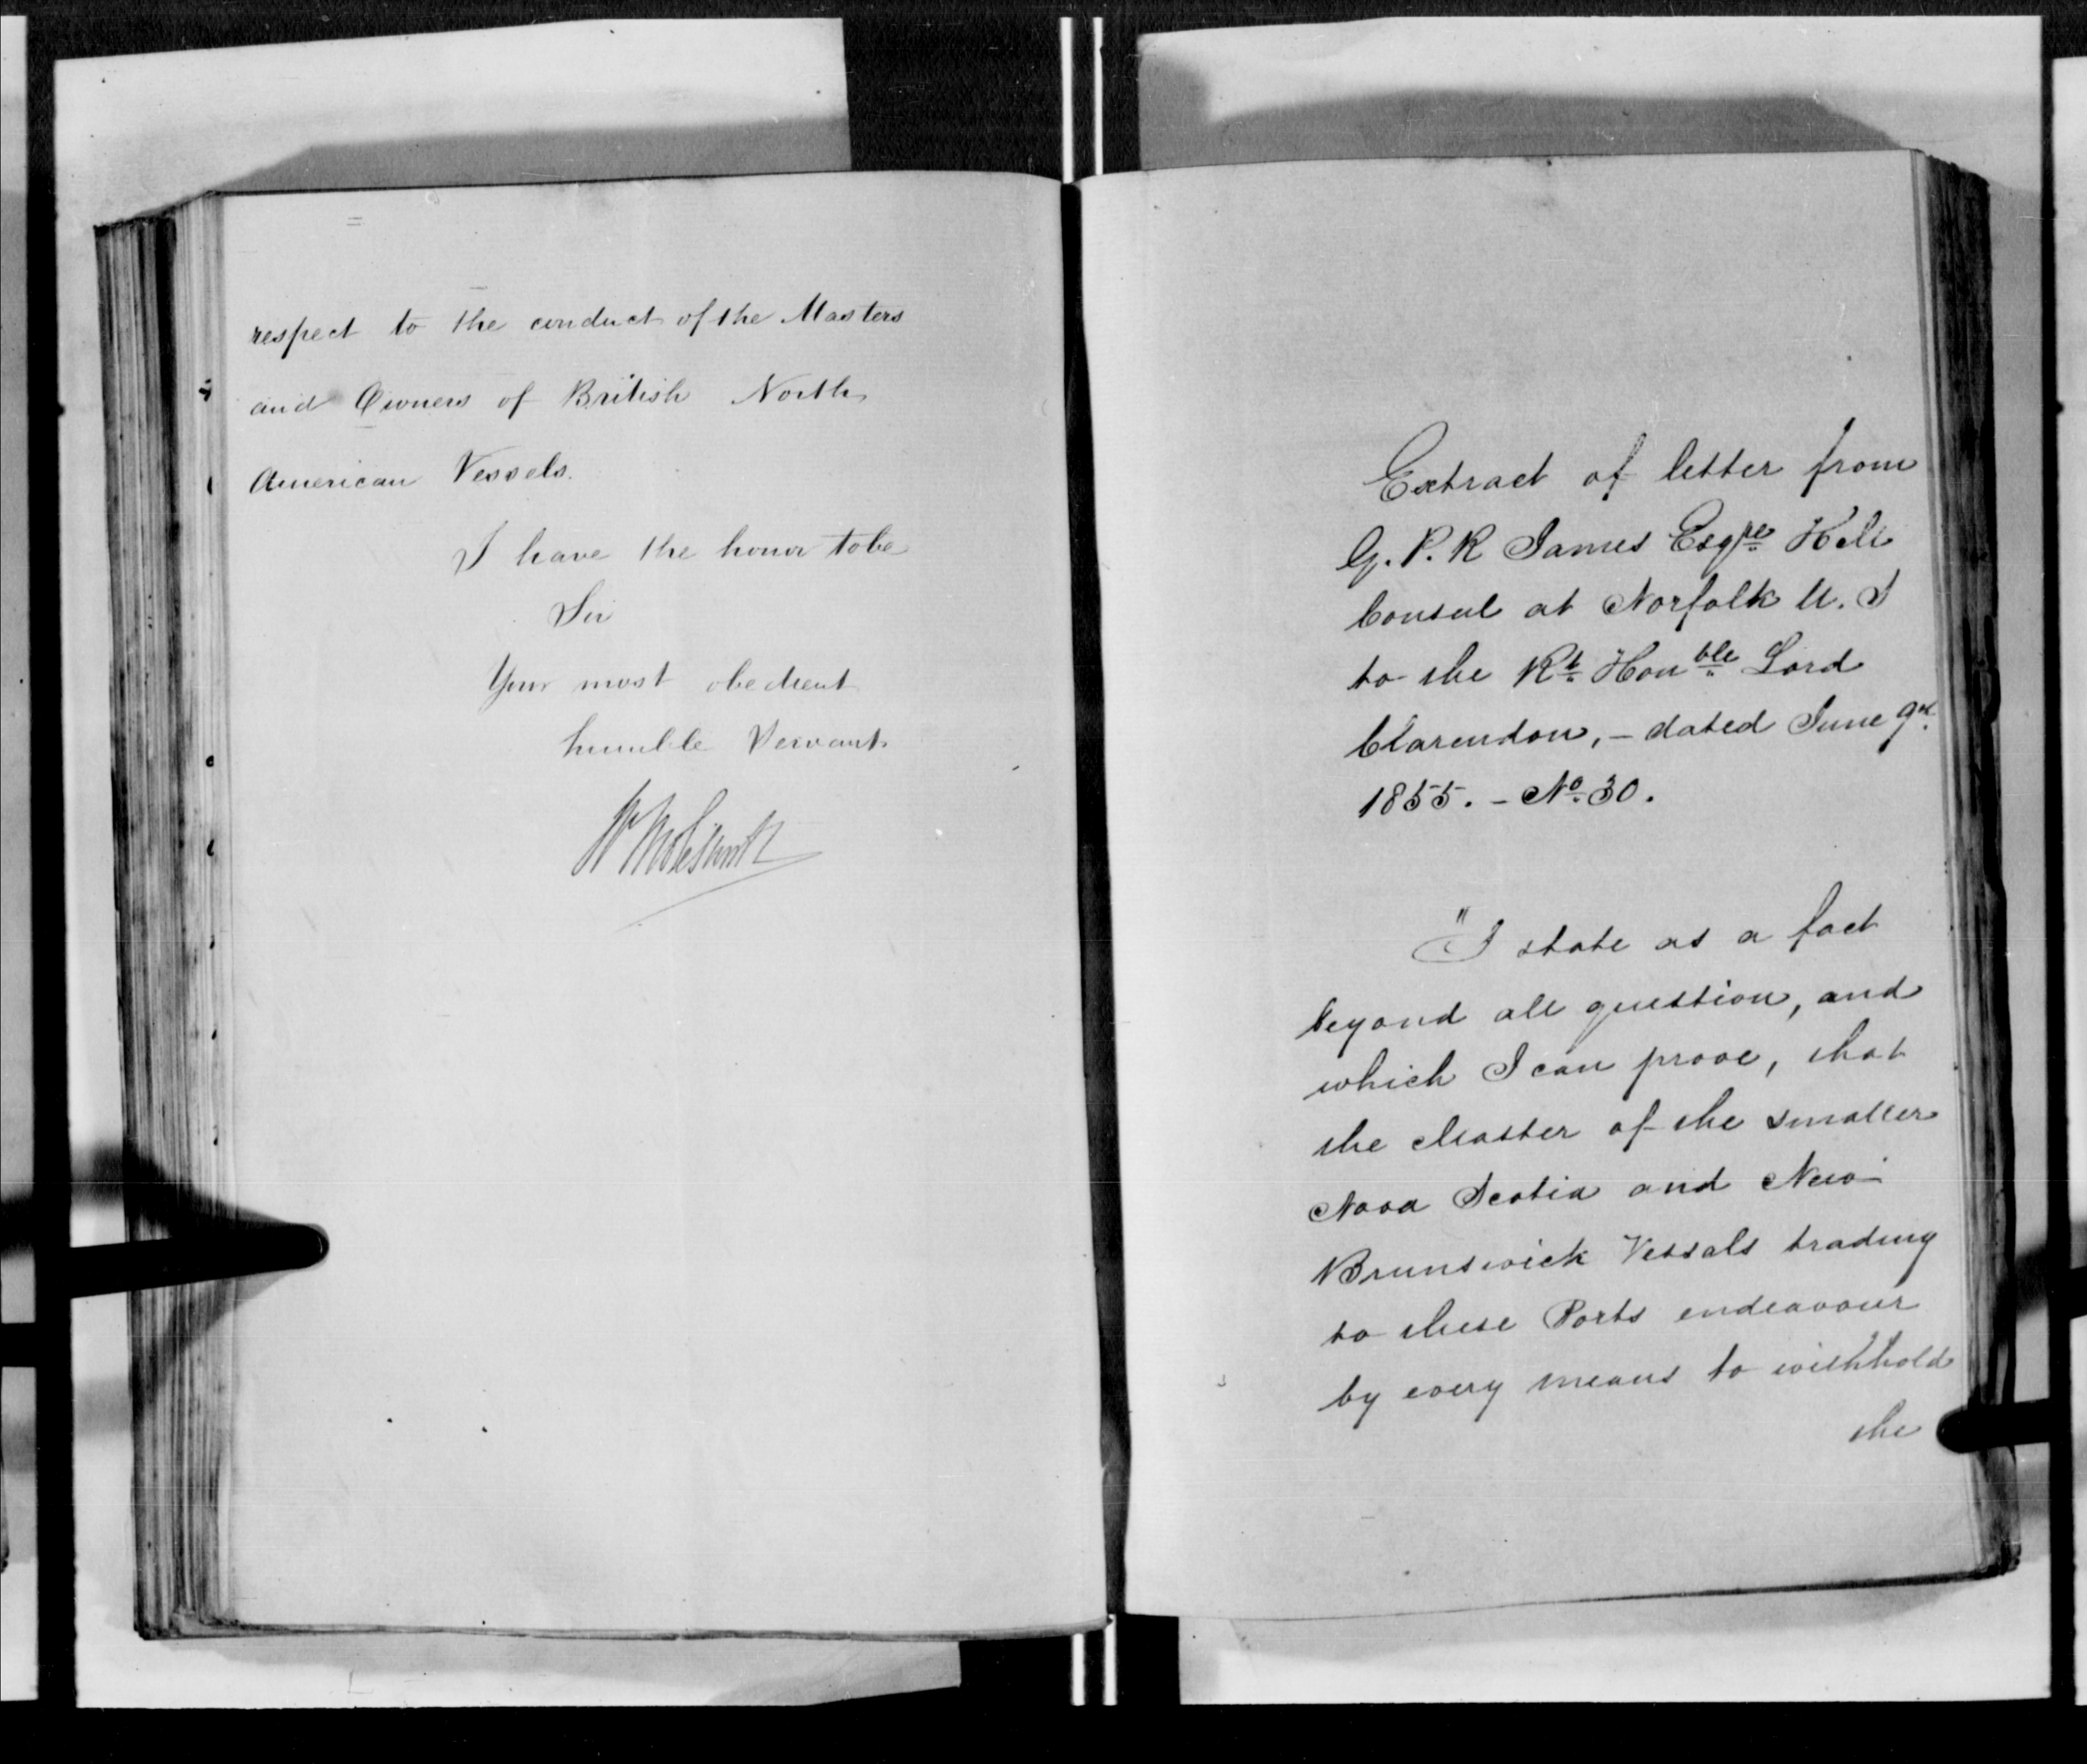 respect to the conduct of the Masters
and Owners of British North
American Vessels.
I have the honor to be
Sir
Your most obedient
humble Servant
Wm Molesworth
Extract of letter from
G. P. R James Esqre H M
Consul at Norfolk U. S
to the Rt Honble Lord
Clarendon, – dated June 9th
1855. – No 30.
"I state as a fact
beyond all question, and
which I can prove, that
the Master of the smaller
Nova Scotia and New
Brunswick Vessals trading
to these Ports endeavour
by every means to withhold
the